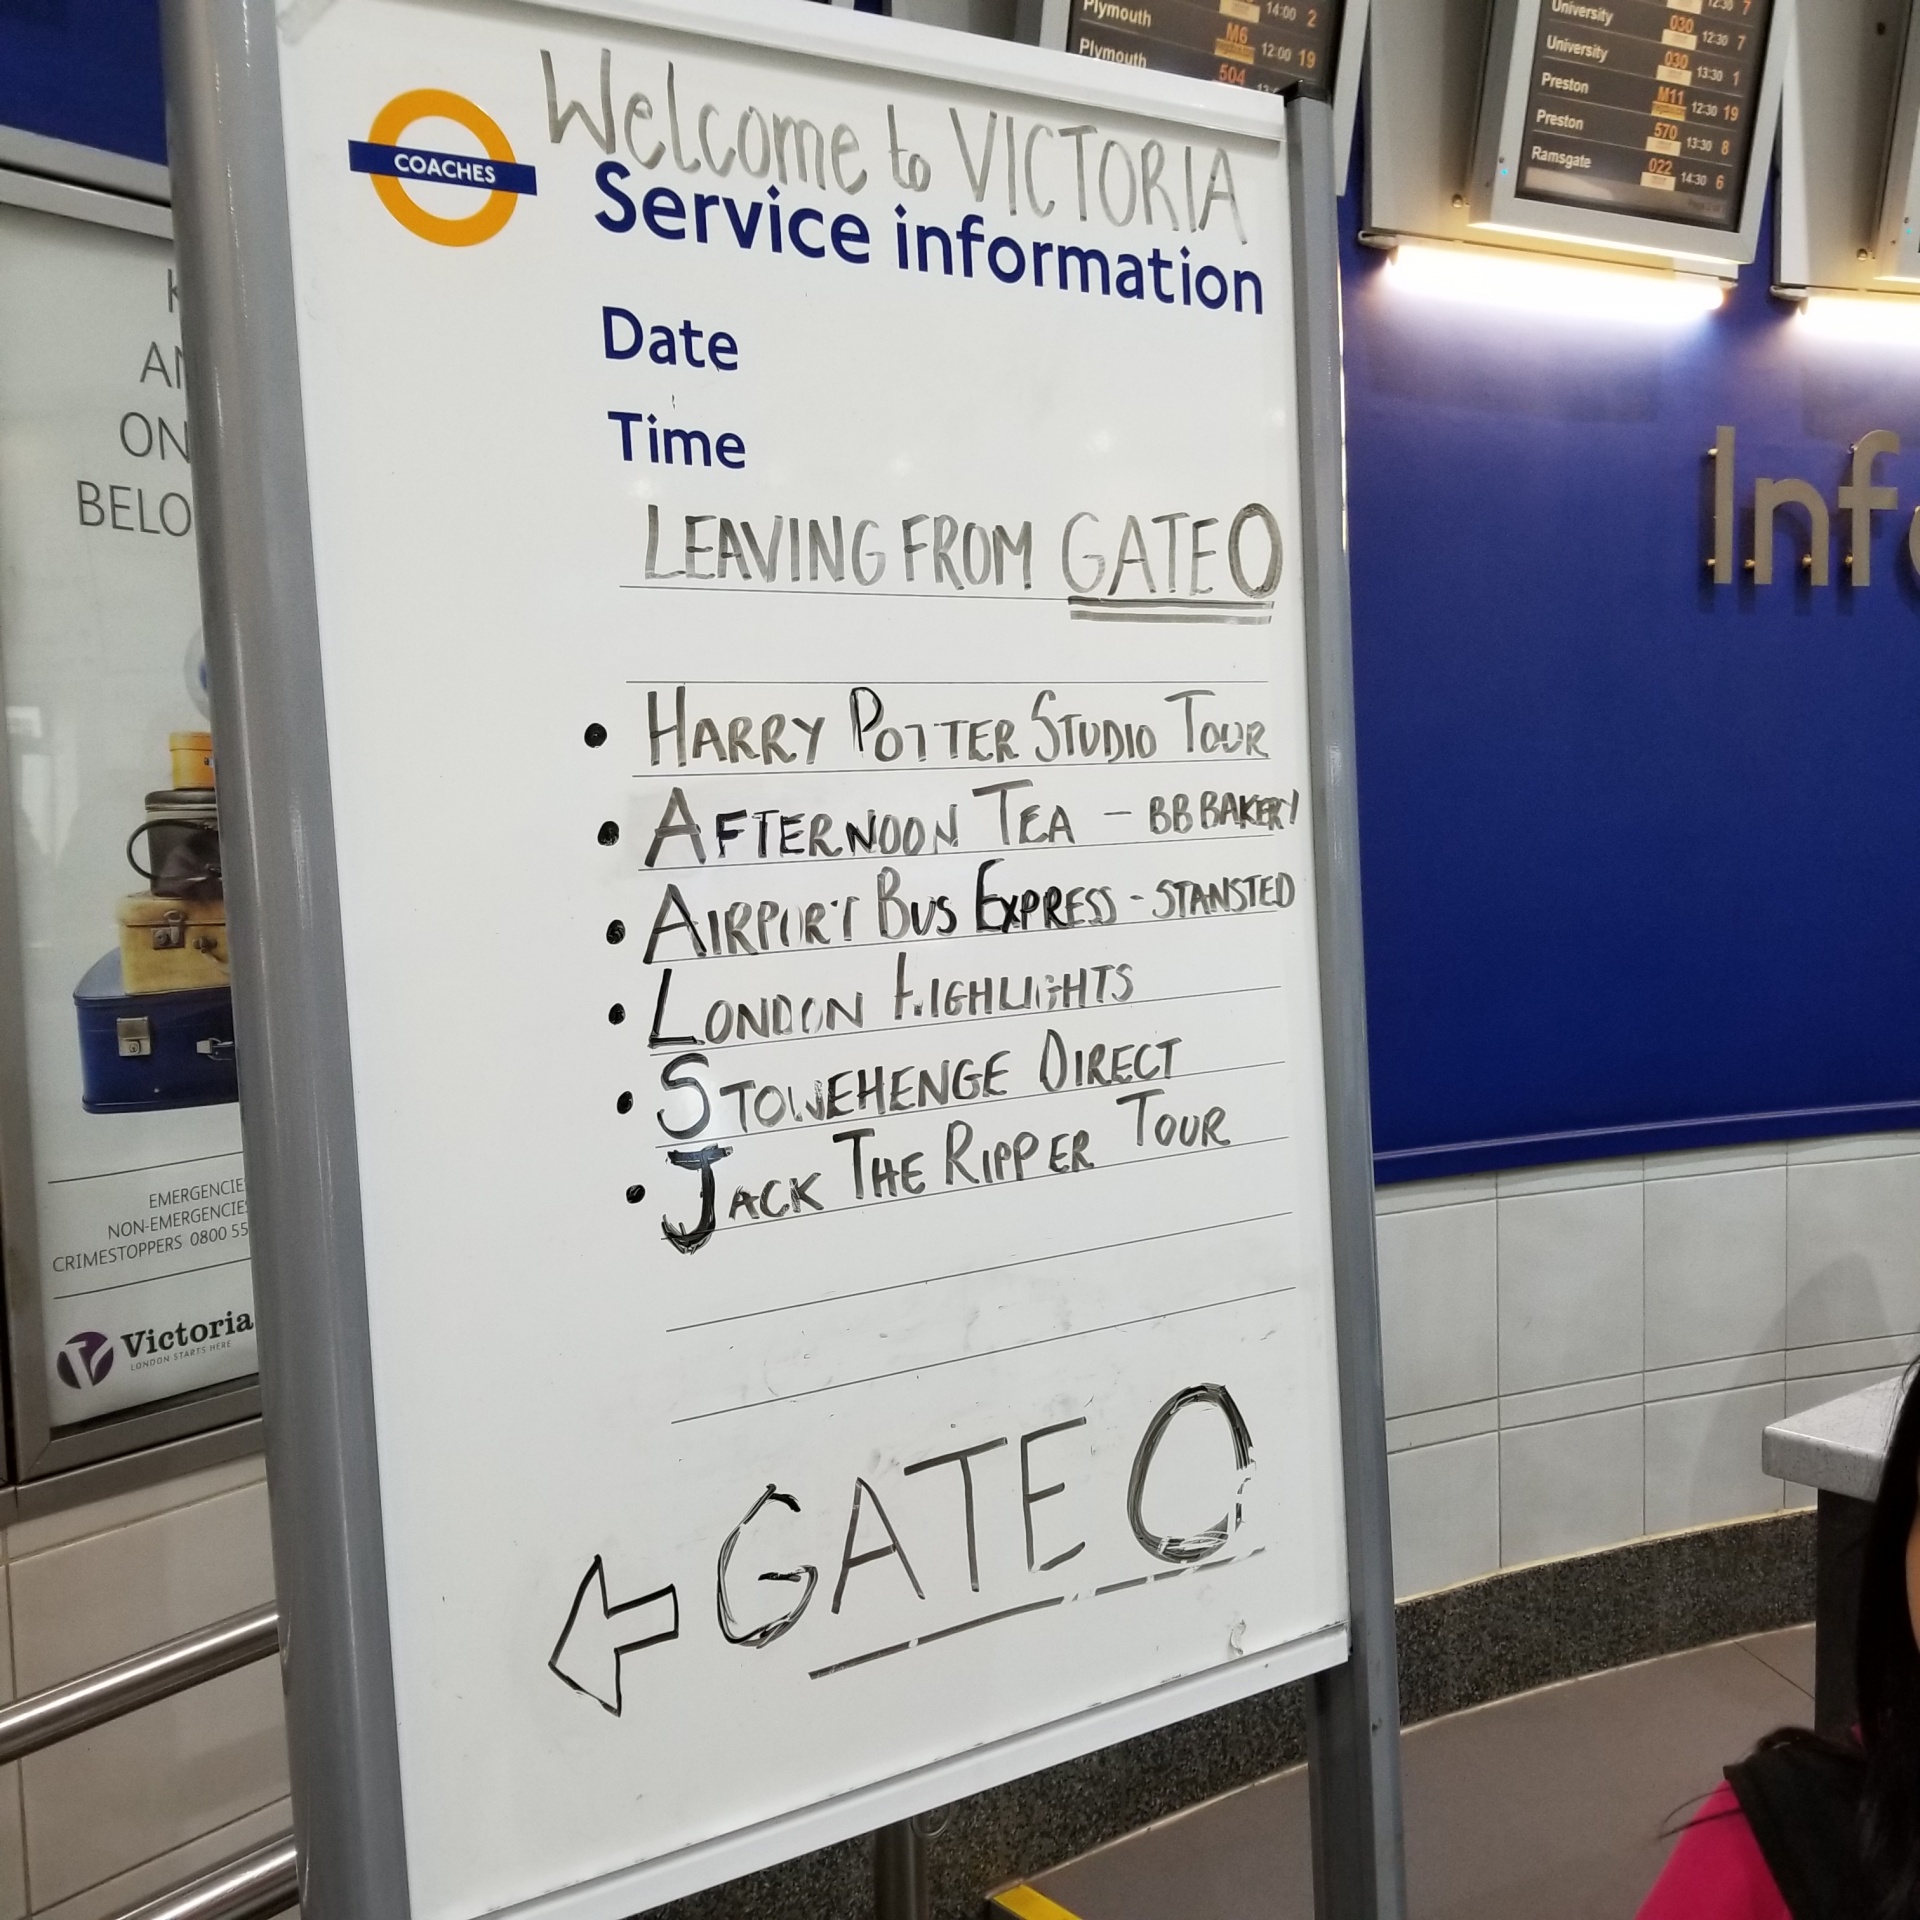 Plymouth 14:00 2
Plymouth M6 12:00 19
504
12:30 7
University 030 12:30 7
University 030 13:30 1
Preston M11 12:30 19
Preston 570 13:30 8
Ramsgate 022 14:30 6
Welcome to VICTORIA
COACHES
Service information
Date
Time
LEAVING FROM GATE O
• HARRY POTTER STUDIO TOUR
• AFTERNOON TEA - BB BAKERY
• AIRPORT BUS EXPRESS - STANSTED
• LONDON HIGHLIGHTS
• STOWEHENGE DIRECT
• JACK THE RIPPER TOUR
← GATE O
Inf
ON
BELO
EMERGENCIE
NON-EMERGENCIE
CRIMESTOPPERS 0800 55
Victoria
LONDON STARTS HERE